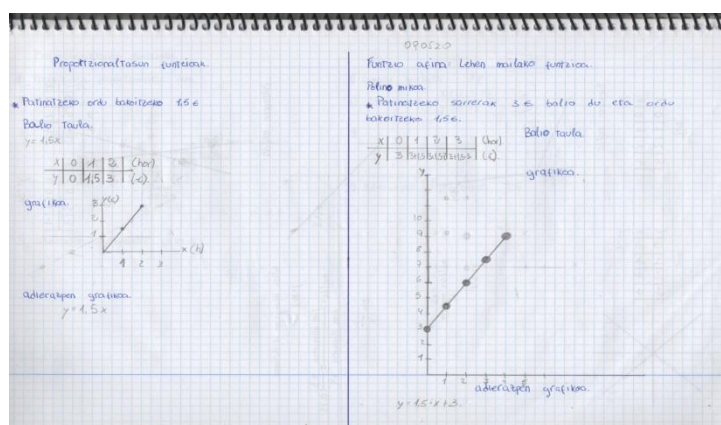 090520
Proportzionaltasun funtzioak.
* Patinatzeko ordu bakoitzeko 1,5 €
Balio taula.
y = 1,5x
x | 0 | 1 | 2 | (hor)
y | 0 | 1,5 | 3 | (€)
grafikoa.
y(€)
3
2
1
1 2 3
x (h)
adierazpen grafikoa
y = 1,5x
Funtzio afina: Lehen mailako funtzioa.
Polinomikoa
* Patinatzeko sarrerak 3 € balio du eta ordu
bakoitzeko 1,5 €.
Balio taula.
x | 0 | 1 | 2 | 3 (hor)
y | 3 (€).
grafikoa.
y
10
9
8
7
6
5
4
3
2
1
1 2 3 4 5
adierazpen grafikoa.
y = 1,5·x + 3.